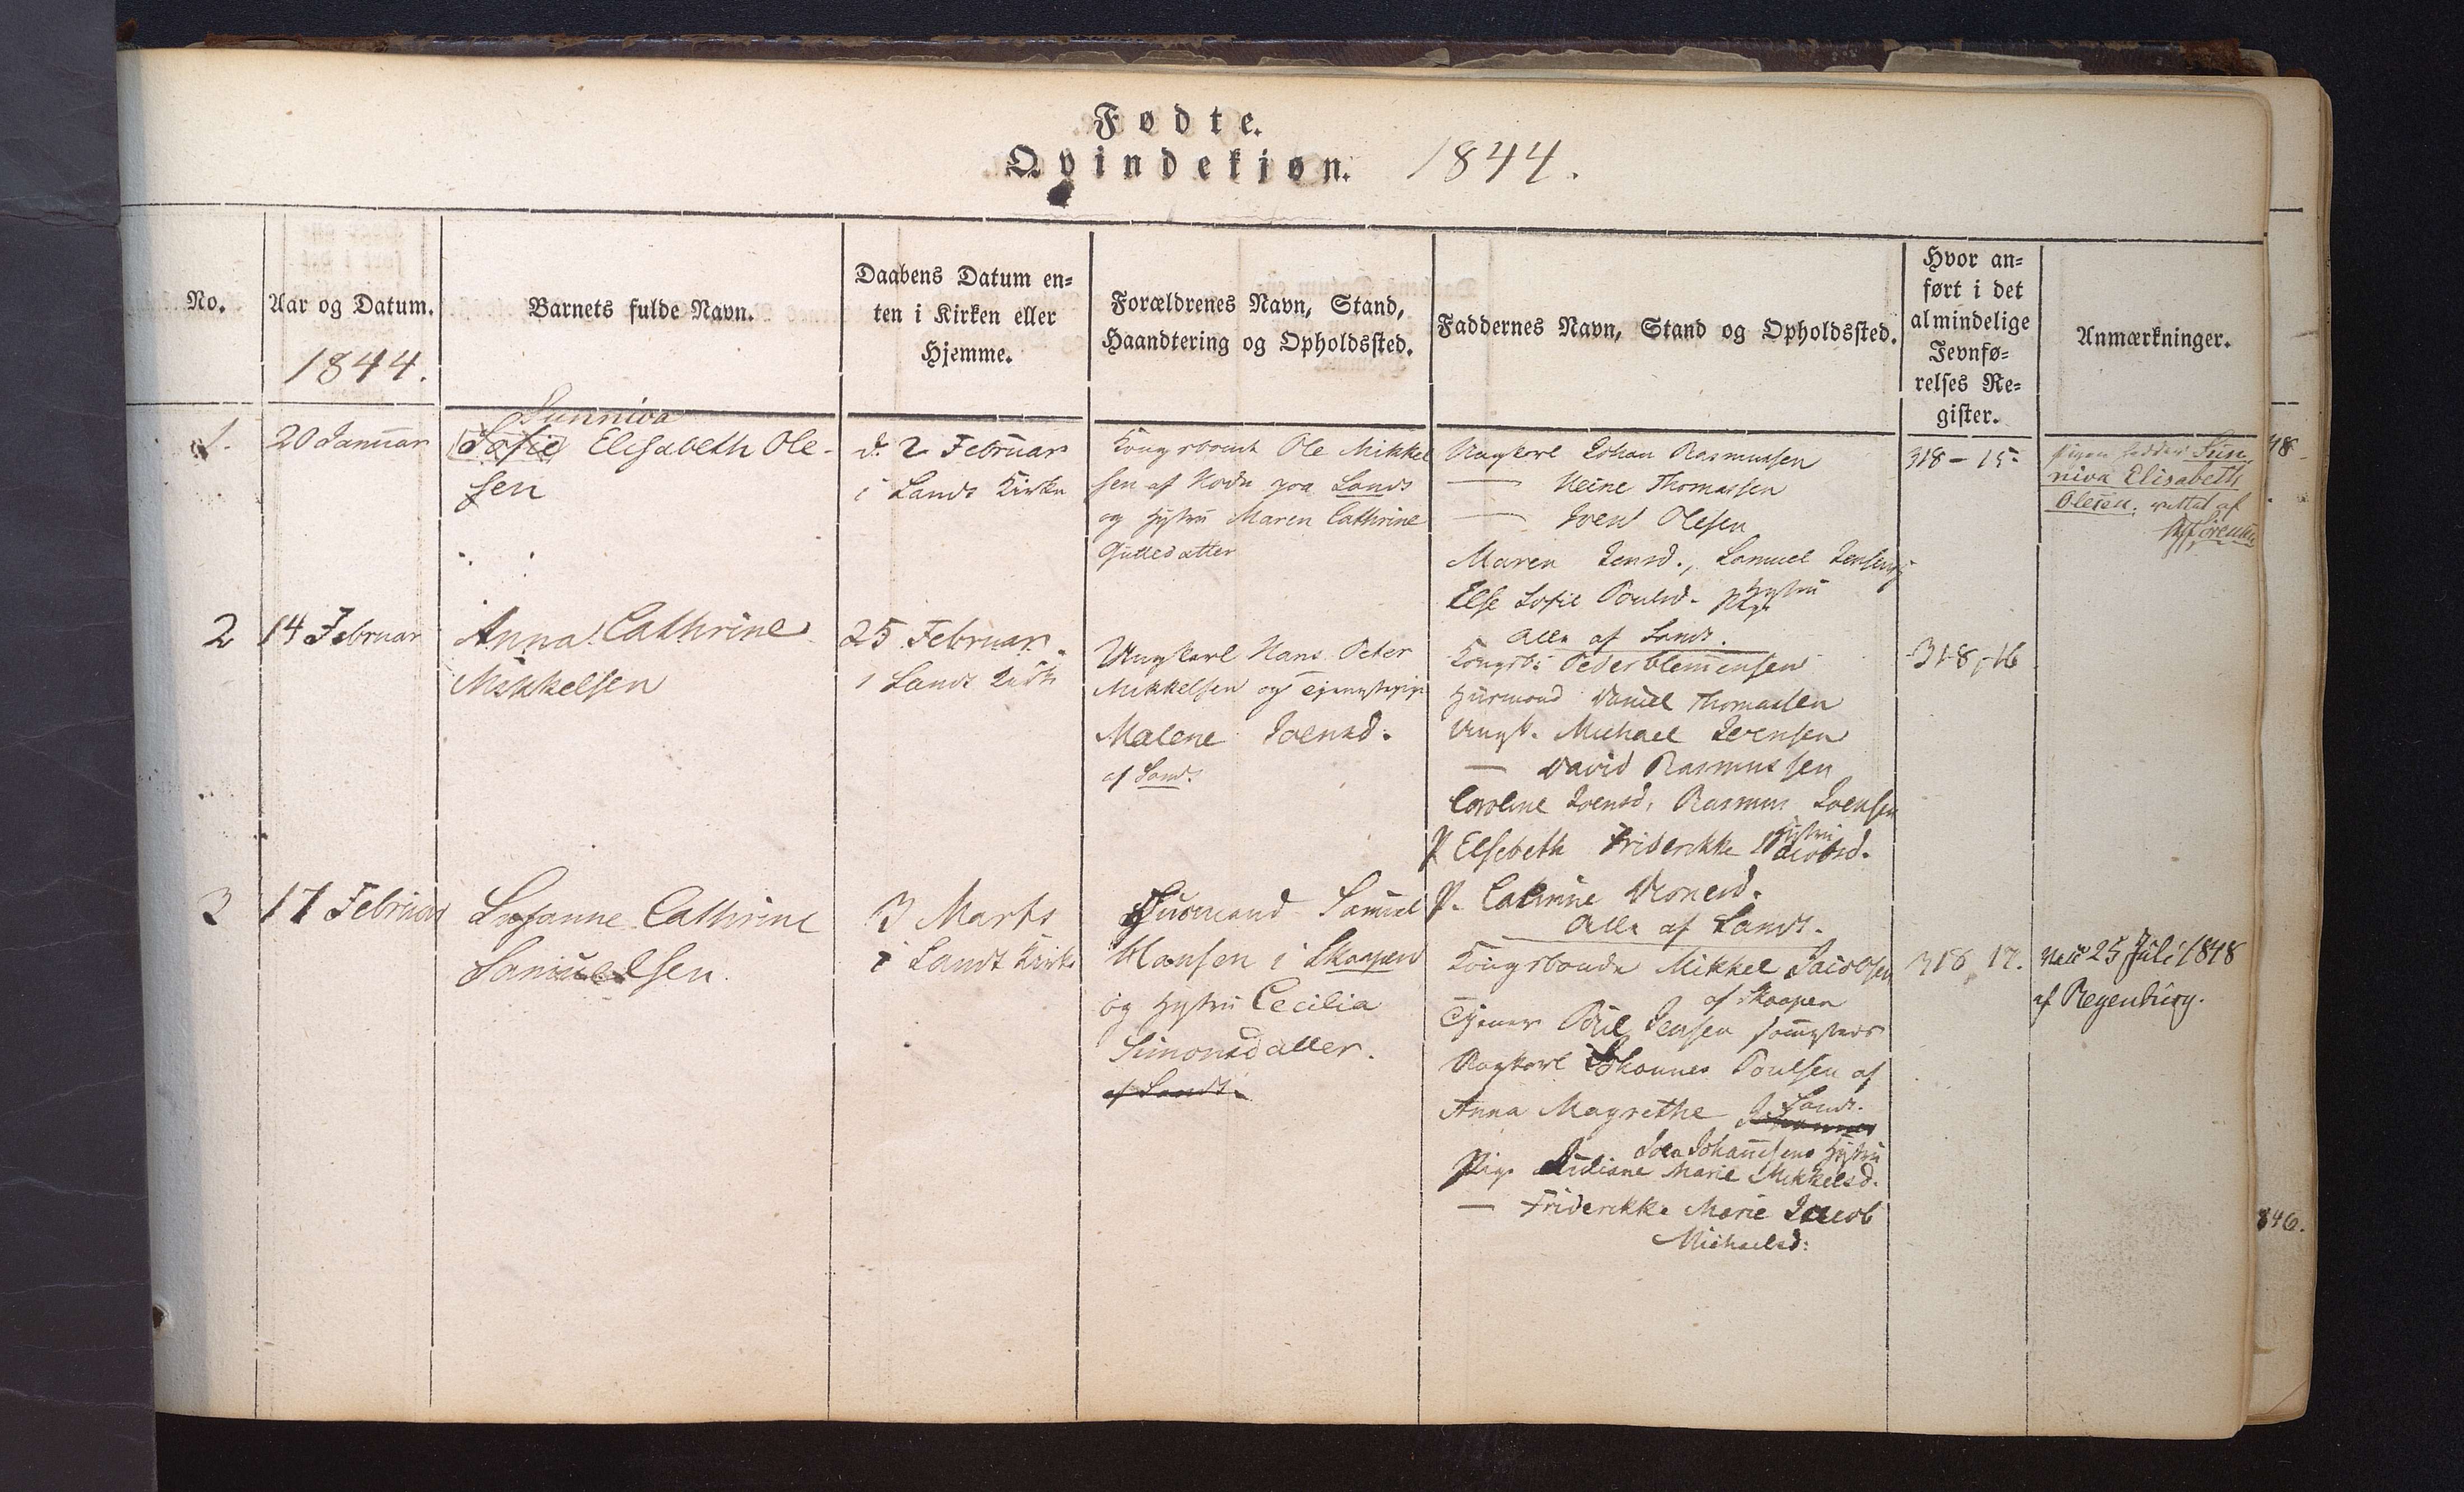 Fødte.
Qvindekjøn. 1844.
No.
Aar og Datum.
1844.
Barnets fulde Navn.
Daabens Datum en-
ten i Kirken eller
Hjemme.
Forældrenes Navn, Stand,
Haandtering og Opholdssted.
Faddernes Navn, Stand og Opholdssted.
Hvor an-
ført i det
almindelige
Jevnfø-
relses Re-
gister.
Anmærkninger.
1.
20 Januar
Sunniva
Sofie Elisabeth Ole-
sen
d. 2 Februar
i Sands Kirke
Kongsbonde Ole Mikkel
sen af Noden paa Sands
og Hustru Maren Cathrine
Gulledatter
Ungkarl Johan Rasmussen
— Heine Thomassen
— Joen Olesen
Maren Jensd., Samuel Jensens
Hustru
Else Sofie Poulsd. Pige
Alle af Sands.
318-15
Pigen hedder Sun-
niva Elisabeth
Olesen, rettet af
Sørensen
2
14 Februar
Anna Cathrine
Mikkelsen
25 Februar.
i Sands Kirke
Ungkarl Hans Peter
Mikkelsen og Tjenestepige
Malene Joensd.
af Sands
Kongsb: Peder Clemensen
Huusmand Daniel Thomassen
Ungk. Michael Jensen
— David Rasmussen
Caroline Joensd, Rasmus Joensen
Hustru
P Elsebeth Friderikke Jacobsd.
P. Cathrine
Alle af Sands.
318,-16
3
17 Februar
Susanne Cathrine
Samuelsen.
3 Marts
i Sands Kirke
Huusmand Samuel
Hansen i Skaapen
og Hustru Cecilia
Simonsdatter.
af Sands.
Kongsbonde Mikkel Jacobsen
af Skaapen
Tjener Poul Jensen sammesteds
Ungkarl Johannes Poulsen af
Sands.
Anna Magrethe Johannes
Joen Johannesens Hustru
Pige Juliane Marie Mikkelsd.
— Friderikke Marie Jacob
Michaelsd:
318, 17.
25 Juli 1848
af Regenburg.
318
846.